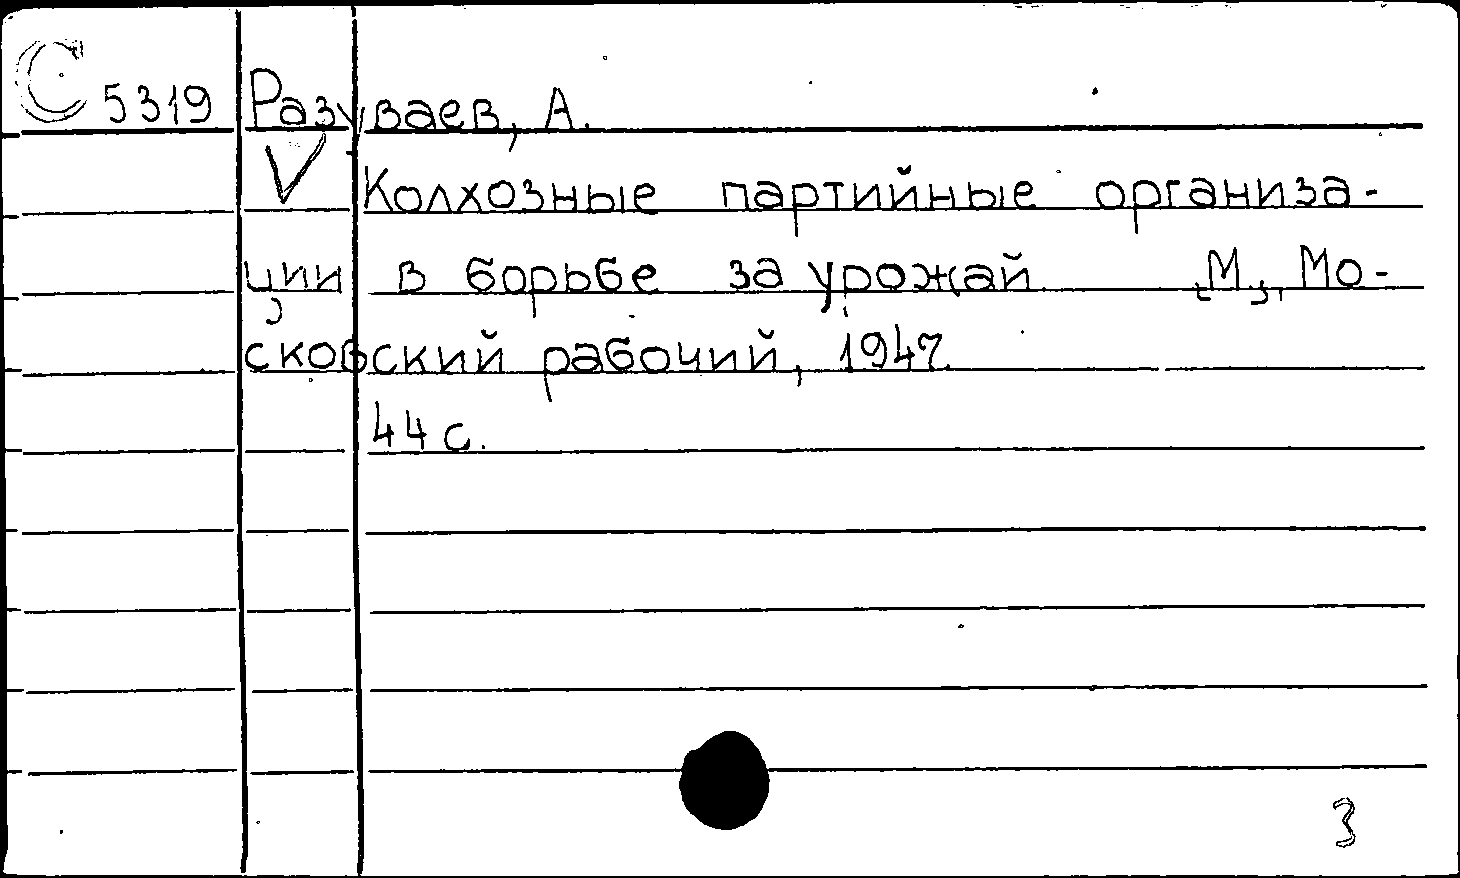 С 5319 Разуваев, А.
V Колхозные партийные организа-
ции в борьбе за урожай [М.], Мо-
сковский рабочий, 1947.
44 с.
3